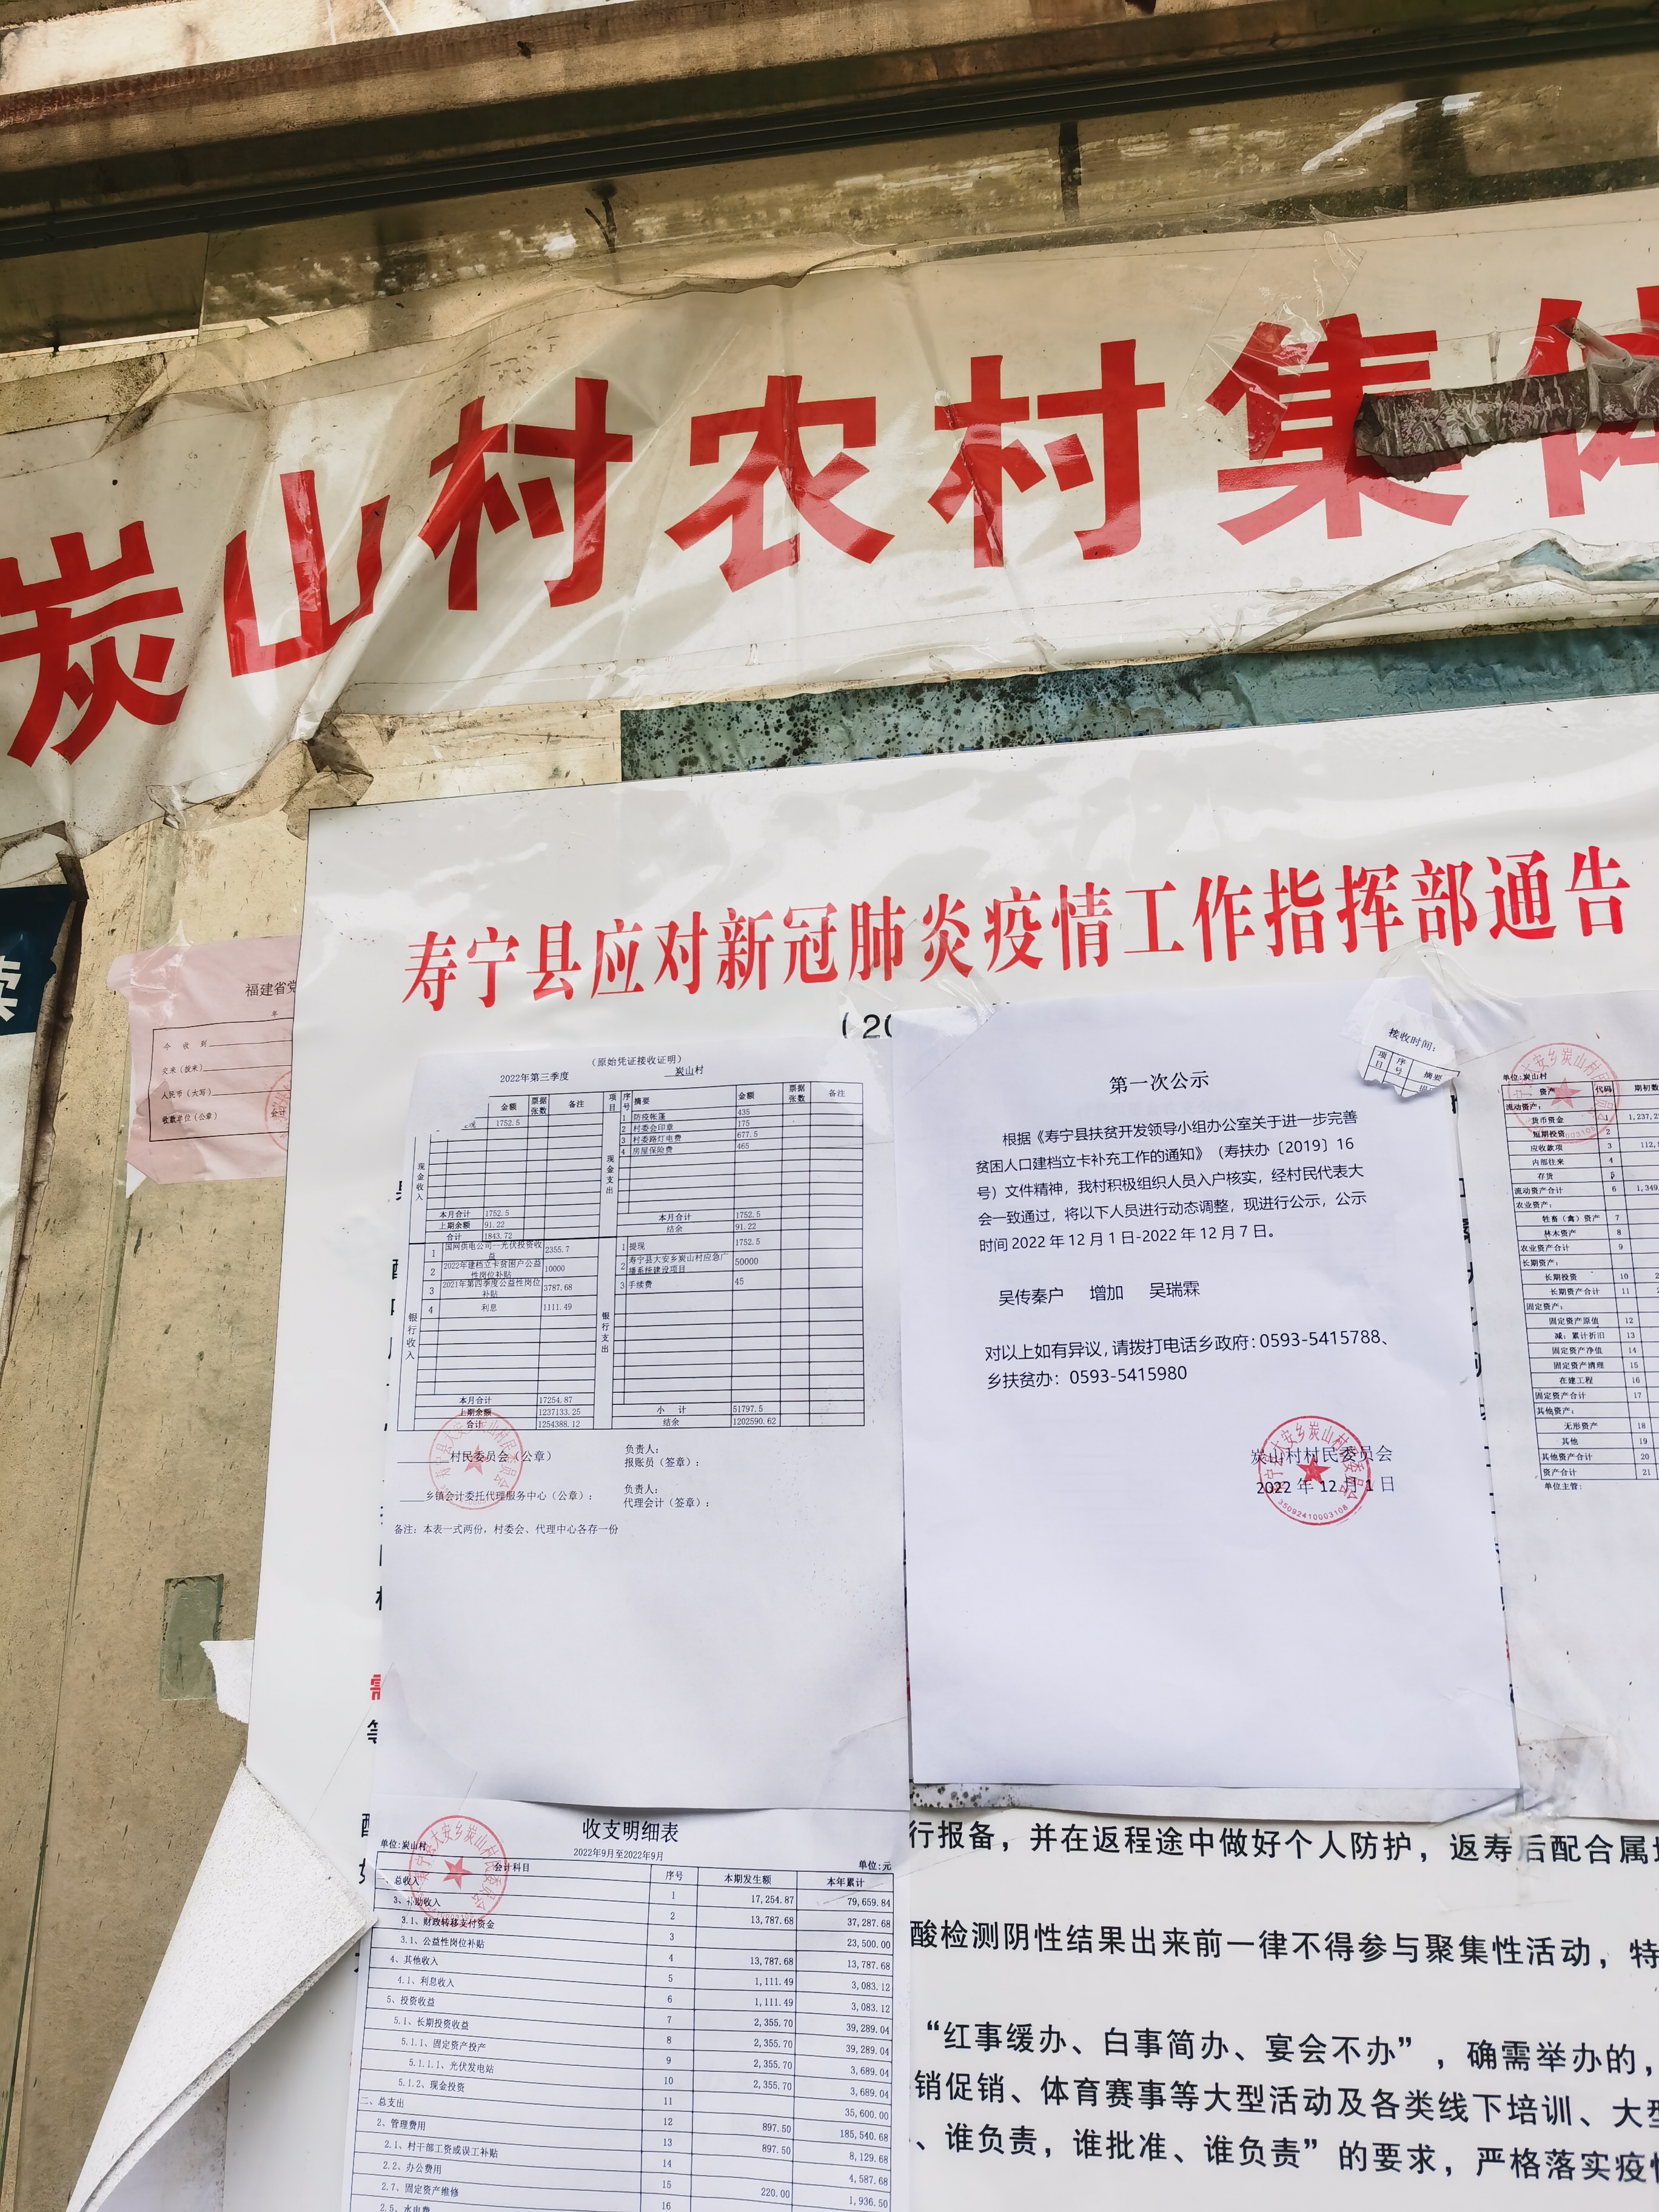 炭山村农村集体
寿宁县应对新冠肺炎疫情工作指挥部通告
(20
福建省党
年
今 收 到
交来（拨来）
人民币（大写）
收款单位（公章）
会计
（原始凭证接收证明）
2022年第三季度 炭山村
金额 票据张数 备注 项目 序号 摘要 金额 票据张数 备注
1752.5 1 防疫帐篷 435
2 村委会印章 175
3 村委路灯电费 677.5
4 房屋保险费 465
现金收入 现金支出
本月合计 1752.5 本月合计 1752.5
上期余额 91.22 结余 91.22
合计 1843.72
1 国网供电公司--光伏投资收益 2355.7 1 提现 1752.5
2 2022年建档立卡贫困户公益性岗位补贴 10000 2 寿宁县大安乡炭山村应急广播系统建设项目 50000
3 2021年第四季度公益性岗位补贴 3787.68 3 手续费 45
4 利息 1111.49
银行收入 银行支出
本月合计 17254.87
上期余额 1237133.25 小 计 51797.5
合计 1254388.12 结余 1202590.62
村民委员会（公章） 负责人：
报账员（签章）：
乡镇会计委托代理服务中心（公章）： 负责人：
代理会计（签章）：
备注：本表一式两份，村委会、代理中心各存一份
第一次公示
根据《寿宁县扶贫开发领导小组办公室关于进一步完善
贫困人口建档立卡补充工作的通知》（寿扶办〔2019〕16
号）文件精神，我村积极组织人员入户核实，经村民代表大
会一致通过，将以下人员进行动态调整，现进行公示，公示
时间 2022 年 12 月 1 日-2022 年 12 月 7 日。
吴传秦户 增加 吴瑞霖
对以上如有异议，请拨打电话乡政府：0593-5415788、
乡扶贫办：0593-5415980
炭山村村民委员会
2022 年 12 月 1 日
35092410003108
接收时间：
项目 序号 摘要
单位：炭山村
资产 代码 期初数
流动资产：
货币资金 1 1,237,2
短期投资 2
应收款项 3 112,
内部往来 4
存货 5
流动资产合计 6 1,349,
农业资产：
牲畜（禽）资产 7
林木资产 8
农业资产合计 9
长期资产：
长期投资 10
长期资产合计 11
固定资产：
固定资产原值 12
减：累计折旧 13
固定资产净值 14
固定资产清理 15
在建工程 16
固定资产合计 17
其他资产：
无形资产 18
其他 19
其他资产合计 20
资产合计 21
单位主管：
收支明细表
单位：炭山村 2022年9月至2022年9月 单位：元
会计科目 序号 本期发生额 本年累计
一、总收入 1 17,254.87 79,659.84
3、补助收入 2 13,787.68 37,287.68
3.1、财政转移支付资金 3 23,500.00
3.1、公益性岗位补贴 4 13,787.68 13,787.68
4、其他收入 5 1,111.49 3,083.12
4.1、利息收入 6 1,111.49 3,083.12
5、投资收益 7 2,355.70 39,289.04
5.1、长期投资收益 8 2,355.70 39,289.04
5.1.1、固定资产投产 9 2,355.70 3,689.04
5.1.1.1、光伏发电站 10 2,355.70 3,689.04
5.1.2、现金投资 11 35,600.00
二、总支出 12 897.50 185,540.68
2、管理费用 13 897.50 8,129.68
2.1、村干部工资或误工补贴 14 4,587.68
2.2、办公费用 15 220.00 1,936.50
2.7、固定资产维修 16
2.5、水电费
行报备，并在返程途中做好个人防护，返寿后配合属地
酸检测阴性结果出来前一律不得参与聚集性活动，特
“红事缓办、白事简办、宴会不办”，确需举办的，
销促销、体育赛事等大型活动及各类线下培训、大型
、谁负责，谁批准、谁负责”的要求，严格落实疫情